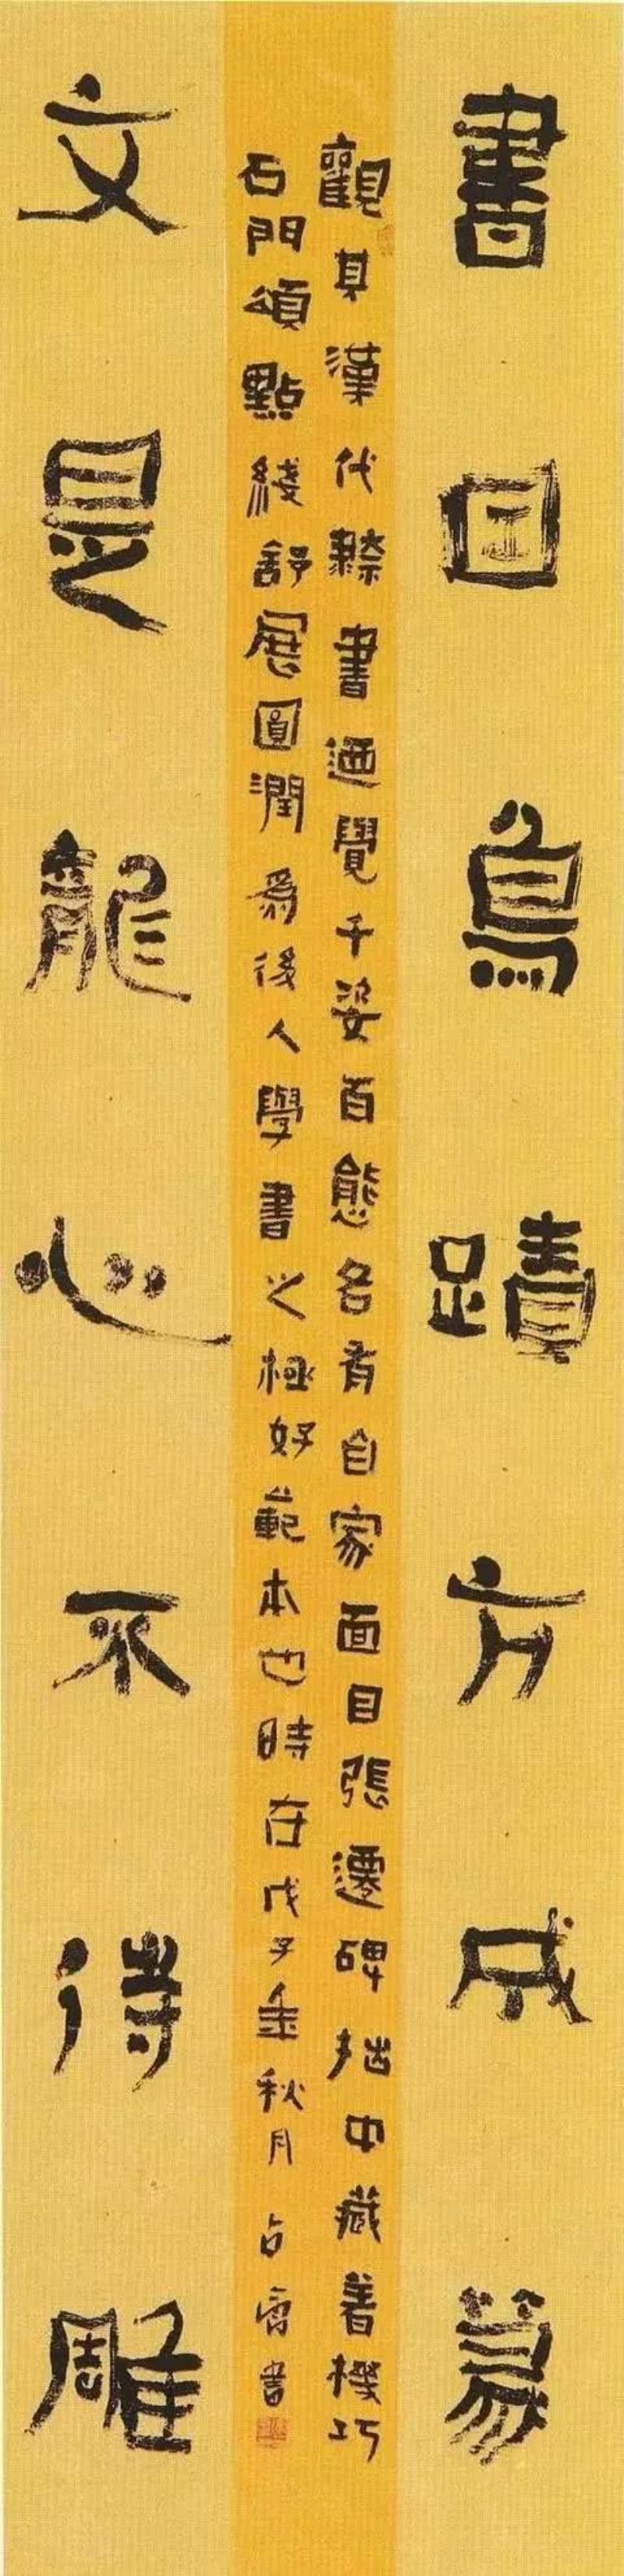 書因鳥蹟方成篆
觀其漢代隸書迺覺千姿百態各有自家面目張遷碑拙中藏着機巧
石門頌點綫舒展圓潤爲後人學書之極好範本也時在戊子金秋月占
書
文是龍心不待雕